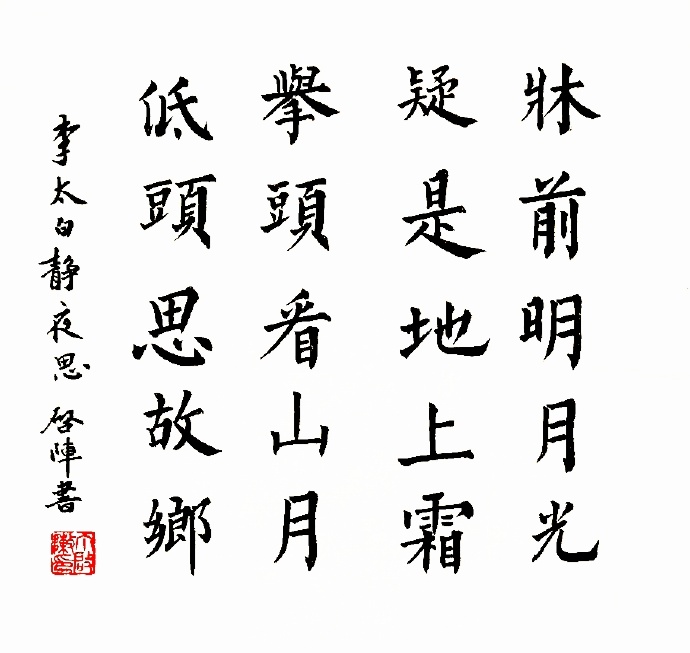 牀前明月光
疑是地上霜
舉頭看山月
低頭思故鄉
李太白静夜思 啓陣書